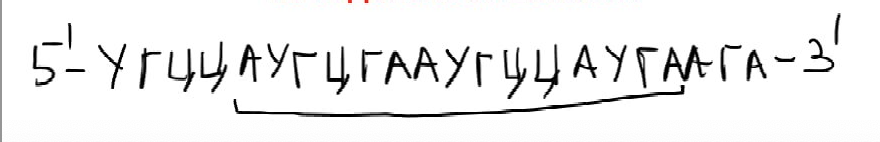 5'-УГЦЦАУГЦГААУГЦЦАУГААГА-3'